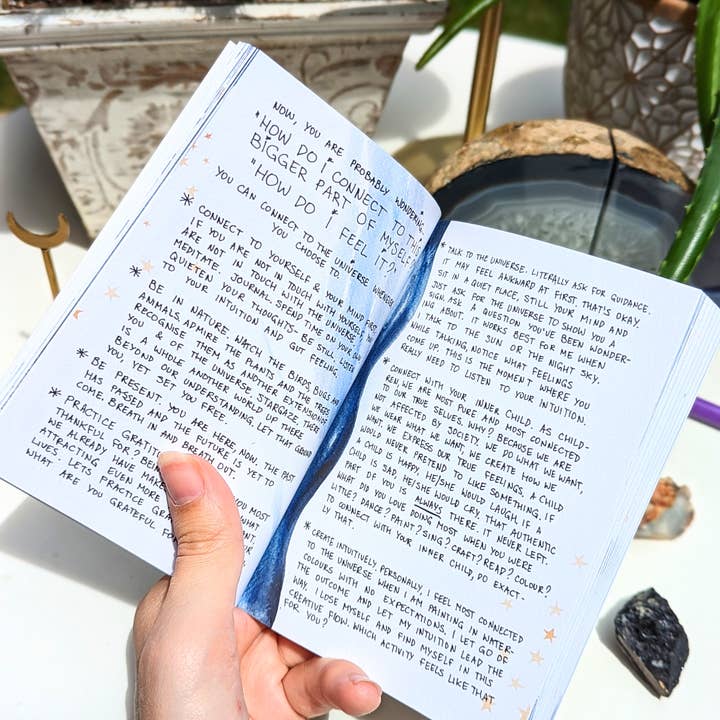 NOW, YOU ARE PROBABLY WONDERING,
"HOW DO I CONNECT TO THE
BIGGER PART OF MYSELF?"
"HOW DO I FEEL IT?"
YOU CAN CONNECT TO THE UNIVERSE WHENEVER
YOU CHOOSE TO.
* CONNECT TO YOURSELF & YOUR MIND FIRST.
IF YOU ARE NOT IN TOUCH WITH YOURSELF YOU
ARE NOT IN TOUCH WITH THE UNIVERSE.
MEDITATE. JOURNAL. SPEND TIME ON YOUR OWN.
QUIETEN YOUR THOUGHTS. BE STILL. LISTEN
TO YOUR INTUITION AND GUT FEELING
* BE IN NATURE. WATCH THE BIRDS, BUGS AND
ANIMALS. ADMIRE THE PLANTS AND THE TREES
RECOGNISE THEM AS ANOTHER EXTENSION OF
YOU & OF THE UNIVERSE. STARGAZE. THERE
IS A WHOLE ANOTHER WORLD UP THERE
BEYOND OUR UNDERSTANDING. LET THAT GROUND
YOU, YET SET YOU FREE.
* BE PRESENT. YOU ARE HERE, NOW. THE PAST
HAS PASSED AND THE FUTURE IS YET TO
COME. BREATH IN AND BREATH OUT.
* PRACTICE YOU MOST
THANKFUL FOR? WHAT
WE ALREADY HAVE
ATTRACTING EVEN MORE
LIVES. LETS PRACTICE
WHAT ARE YOU GRATEFUL
* TALK TO THE UNIVERSE. LITERALLY ASK FOR GUIDANCE.
IT MAY FEEL AWKWARD AT FIRST. THAT'S OKAY.
SIT IN A QUIET PLACE, STILL YOUR MIND AND
JUST ASK FOR THE UNIVERSE TO SHOW YOU A
SIGN. ASK A QUESTION YOU'VE BEEN WONDER-
ING ABOUT. IT WORKS BEST FOR ME WHEN
I TALK TO THE SUN OR THE NIGHT SKY.
WHILE TALKING, NOTICE WHAT FEELINGS
COME UP. THIS IS THE MOMENT WHERE YOU
REALLY NEED TO LISTEN TO YOUR INTUITION.
* CONNECT WITH YOUR INNER CHILD. AS CHILD-
REN, WE ARE MOST PURE AND MOST CONNECTED
TO OUR TRUE SELVES. WHY? BECAUSE WE ARE
NOT AFFECTED BY SOCIETY. WE DO WHAT WE WANT,
WE WEAR WHAT WE WANT, WE CREATE HOW WE
WANT. WE EXPRESS OUR TRUE FEELINGS. A CHILD
WOULD NEVER PRETEND TO LIKE SOMETHING. IF
A CHILD IS HAPPY, HE/SHE WOULD LAUGH, IF A
CHILD IS SAD HE/SHE WOULD CRY. THAT AUTHENTIC
PART OF YOU IS ALWAYS THERE. IT NEVER LEFT.
WHAT DID YOU LOVE DOING MOST WHEN YOU WERE
LITTLE? DANCE? PAINT? SING? CRAFT? READ? COLOUR?
TO CONNECT WITH YOUR INNER CHILD, DO EXACT-
LY THAT.
* CREATE INTUITIVELY. PERSONALLY, I FEEL MOST CONNECTED
TO THE UNIVERSE WHEN I AM PAINTING IN WATER-
COLOURS WITH NO EXPECTATIONS. I LET GO OF
THE OUTCOME AND LET MY INTUITION LEAD THE
WAY. I LOSE MYSELF AND FIND MYSELF IN THIS
CREATIVE FLOW. WHICH ACTIVITY FEELS LIKE THAT
FOR YOU?